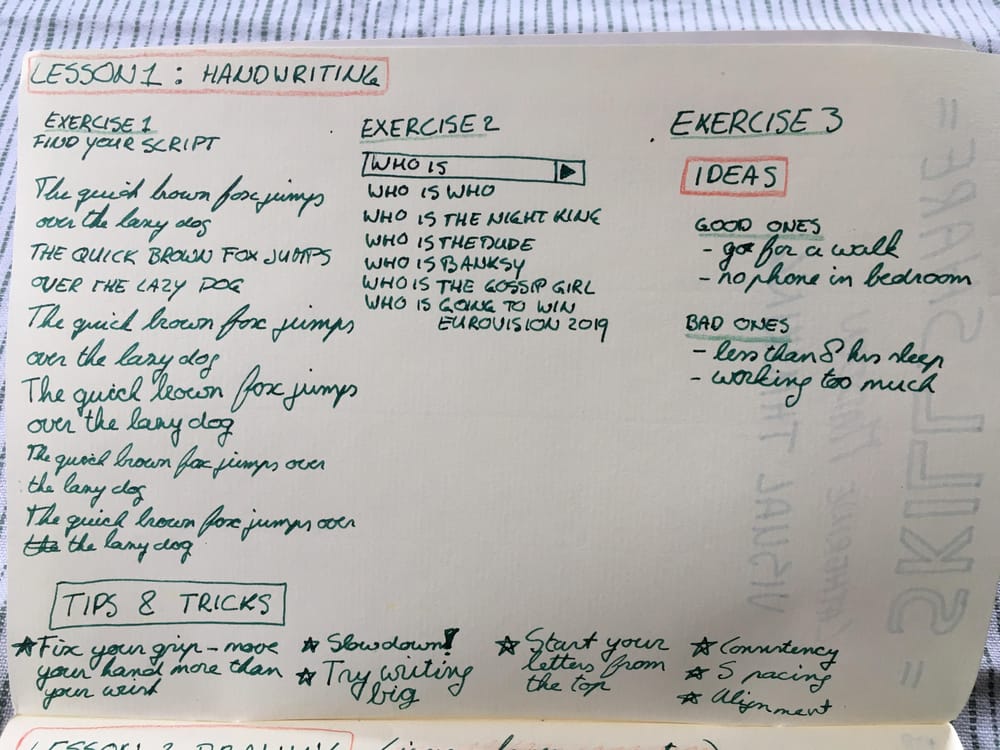 LESSON 1 : HANDWRITING
EXERCISE 1
FIND YOUR SCRIPT
The quick brown fox jumps
over the lazy dog
THE QUICK BROWN FOX JUMPS
OVER THE LAZY DOG
The quick brown fox jumps
over the lazy dog
The quick brown fox jumps
over the lazy dog
The quick brown fox jumps over
the lazy dog
The quick brown fox jumps over
the the lazy dog
EXERCISE 2
WHO IS
WHO IS WHO
WHO IS THE NIGHT KING
WHO IS THE DUDE
WHO IS BANKSY
WHO IS THE GOSSIP GIRL
WHO IS GOING TO WIN
EUROVISION 2019
EXERCISE 3
IDEAS
GOOD ONES
- go for a walk
- no phone in bedroom
BAD ONES
- less than 8 hrs sleep
- working too much
TIPS & TRICKS
Fix your grip - move
your hand more than
your wrist
Slow down!
Try writing
big
Start your
letters from
the top
Consistency
Spacing
Alignment
= SKILLSHARE =
VISUAL THINKING
LESSON 2